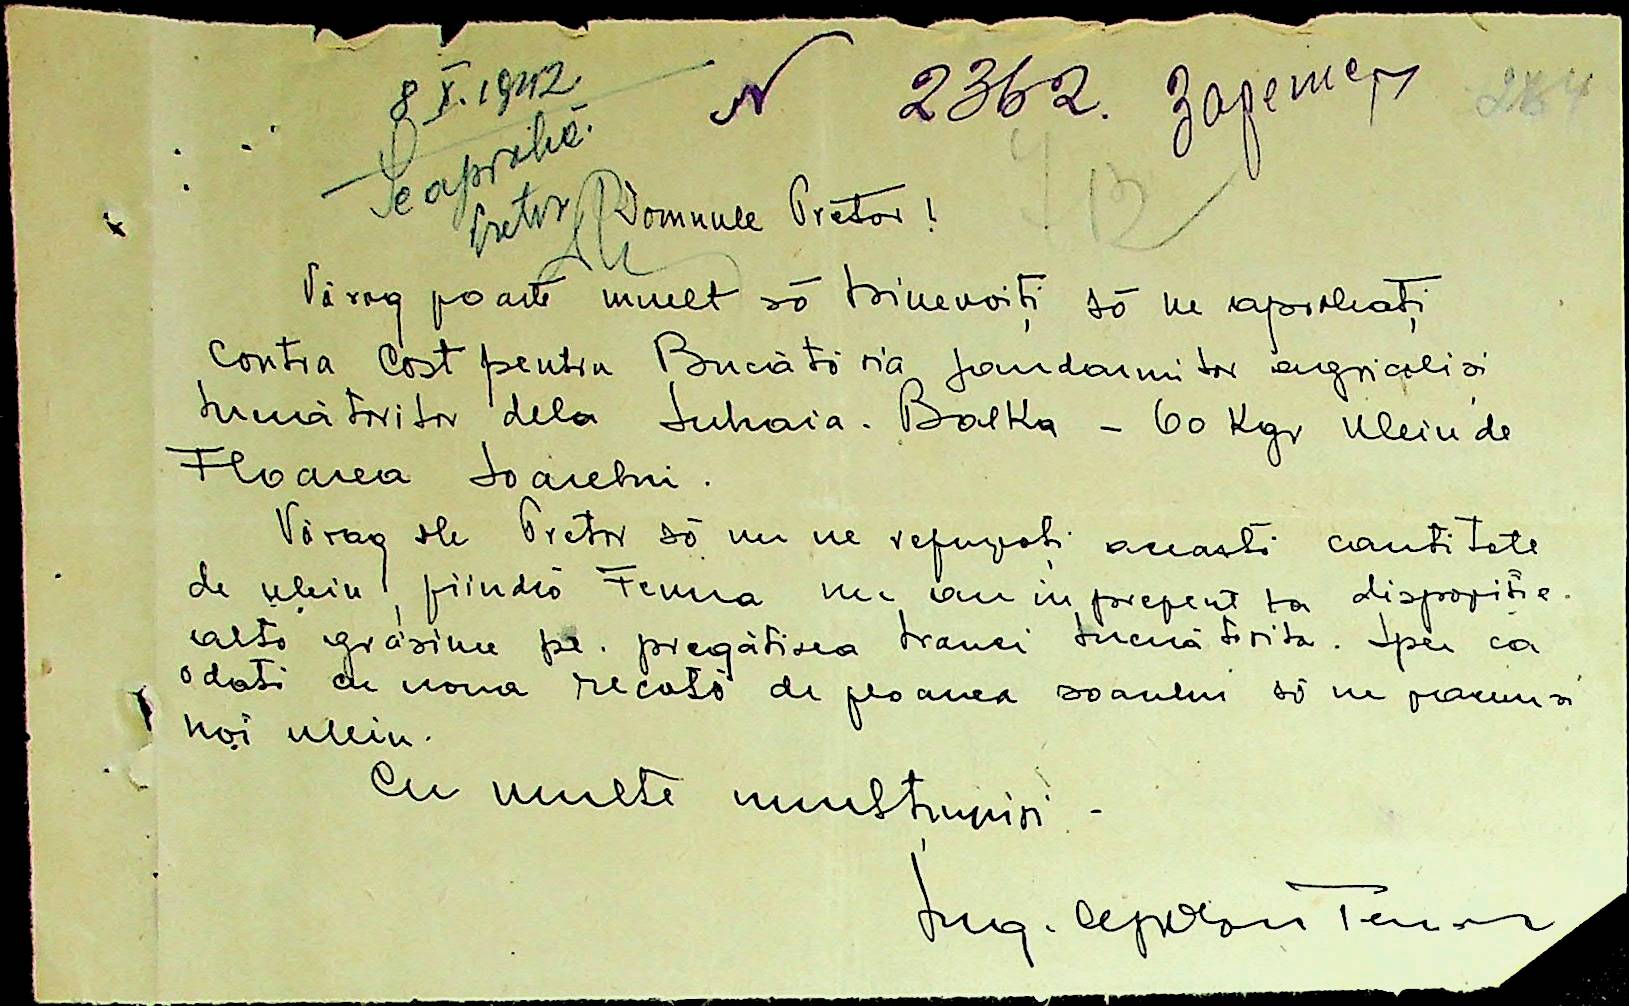 8 X. 1942
Se aprobă.
Pretor
N 2362. Заретет
264
Domnule Pretor!
Vă rog foarte mult să binevoiți să ne aprobați
contra cost pentru Bucătăria jandarmilor agricoli și
lucrătorilor dela Suhaia. Balka – 60 Kgr uleiu de
Floarea Soarelui.
Vă rog dle Pretor să nu ne refuzați această cantitate
de uleiu, fiindcă Ferma nu au în prezent la dispoziție
altă grăsime pt. pregătirea hranei lucrătorilor. Sper că
odată cu noua recoltă de floarea soarelui să ne facem și
noi uleiu.
Cu multe mulțumiri –
Ing.